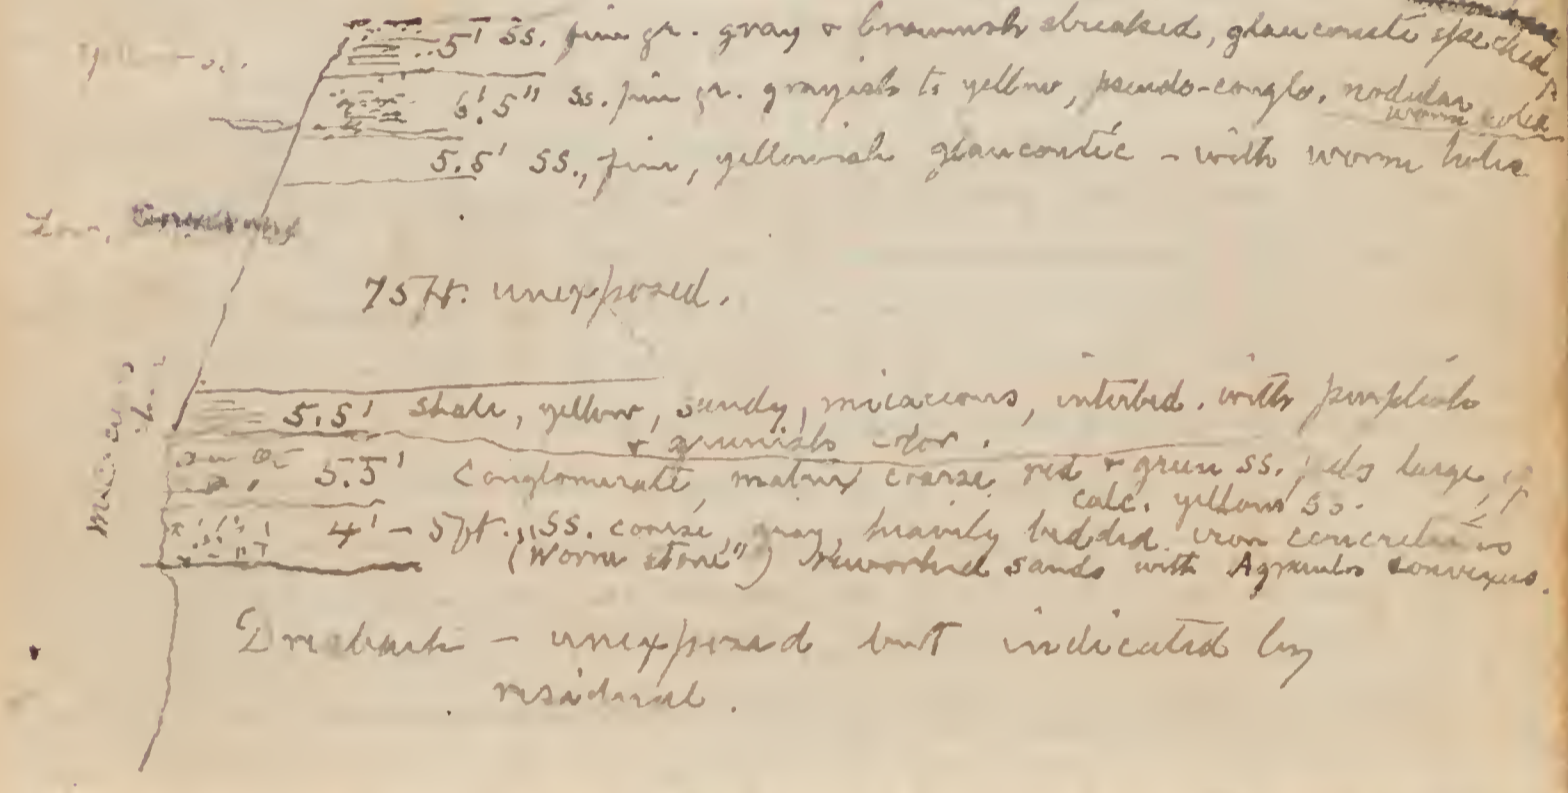 5' ss. fine gr. gray & brownish streaked, glauconite specked,
Yellow ss.
6'.5" ss. fine gr. grayish to yellow, pseudo-conglo. nodular
worm holes
5.5' SS., fine, yellowish glauconitic - with worm holes
Low,
75 ft. unexposed.
5.5' Shale, yellow, sandy, micaceous, interbed. with purplish
& greenish color.
5.5' Conglomerate, matrix coarse red & green ss. large
calc. yellow ss.
4' - 5 ft. SS. coarse, gray, heavily bedded. iron concretions
("Worm stone") reworked sands with Agraulos convexus.
Dresbach - unexposed but indicated by
residual.